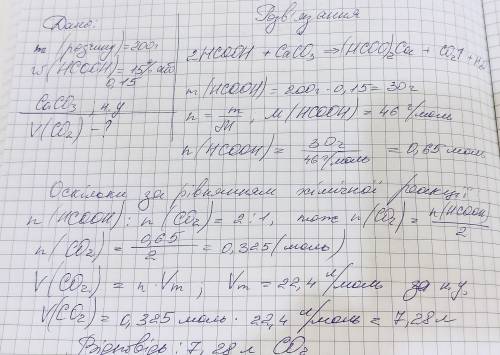 Дано:
Розв'язання
m (розчину) = 200г
w (HCOOH) = 15% або
0,15
CaCO₃, н.у
V(CO₂) - ?
2HCOOH + CaCO₃ → (HCOO)₂Ca + CO₂↑ + H₂
m(HCOOH) = 200г · 0,15 = 30г
n = m/M, M(HCOOH) = 46 г/моль
n(HCOOH) = 30г / 46 г/моль = 0,65 моль
Оскільки за рівнянням хімічної реакції
n(HCOOH) : n(CO₂) = 2:1, тож n(CO₂) = n(HCOOH)/2
n(CO₂) = 0,65/2 = 0,325 (моль)
V(CO₂) = n · Vm ; Vm = 22,4 л/моль за н.у.
V(CO₂) = 0,325 моль · 22,4 л/моль = 7,28л
Відповідь : 7,28 л CO₂